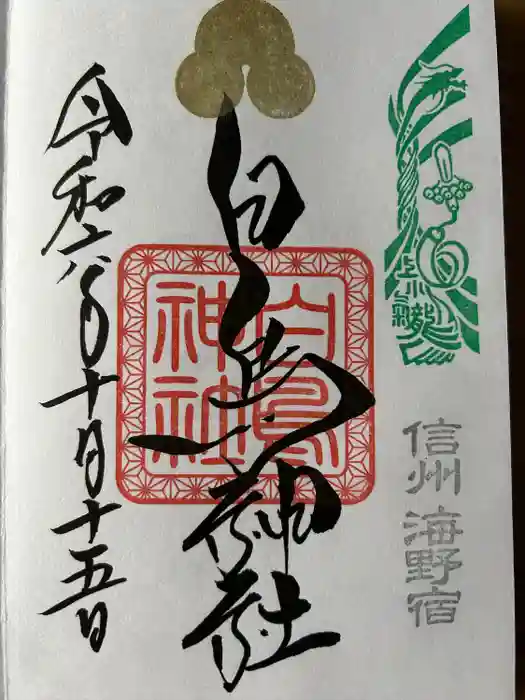 上小
氣龍
信州 海野宿
白鳥神社
白鳥
神社
令和六年十月十五日